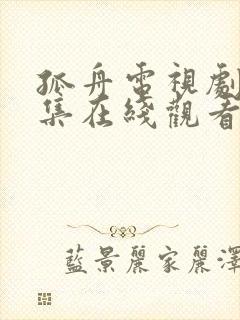 孤舟電視劇
集在綫觀看
藍景麗家麗澤